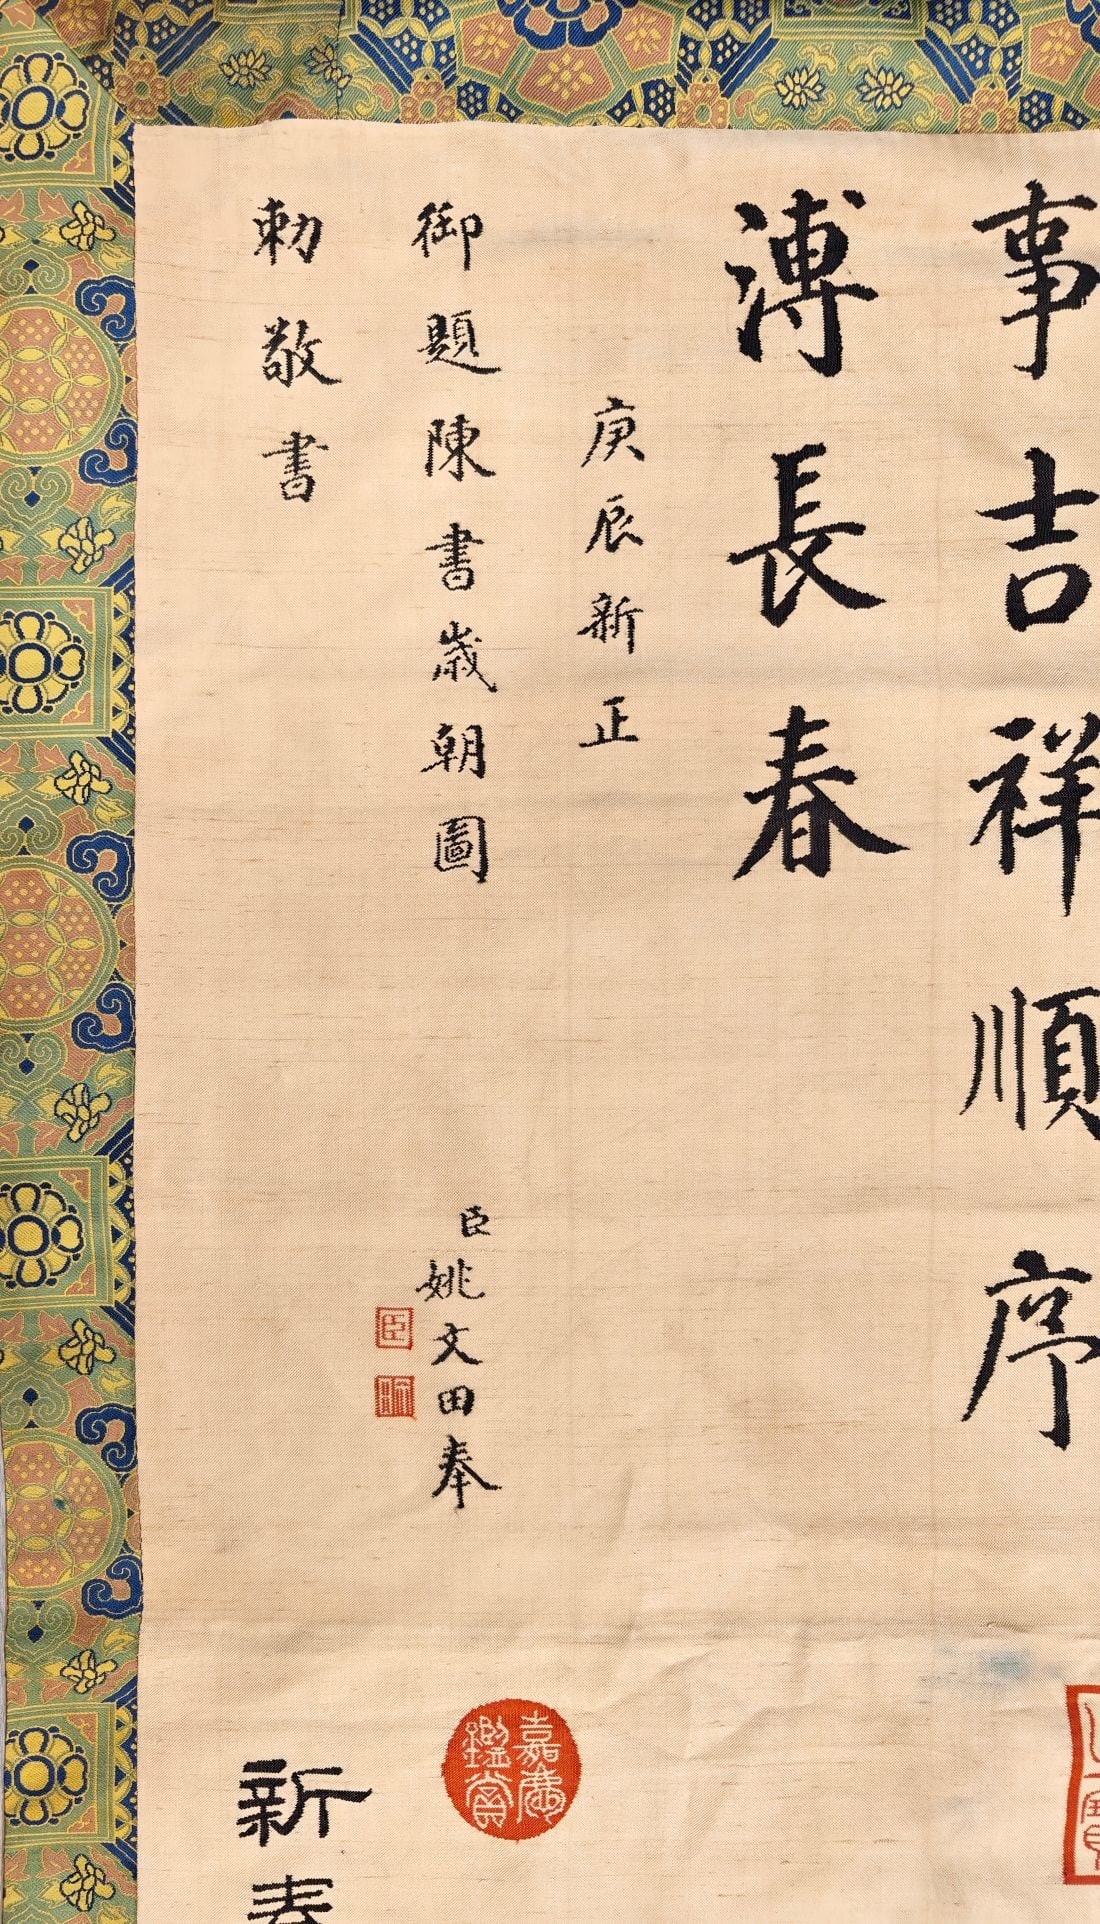 事吉祥順序
溥長春
庚辰新正
御題陳書歲朝圖
臣姚文田奉
勅敬書
臣
嘉慶
鑑賞
新春